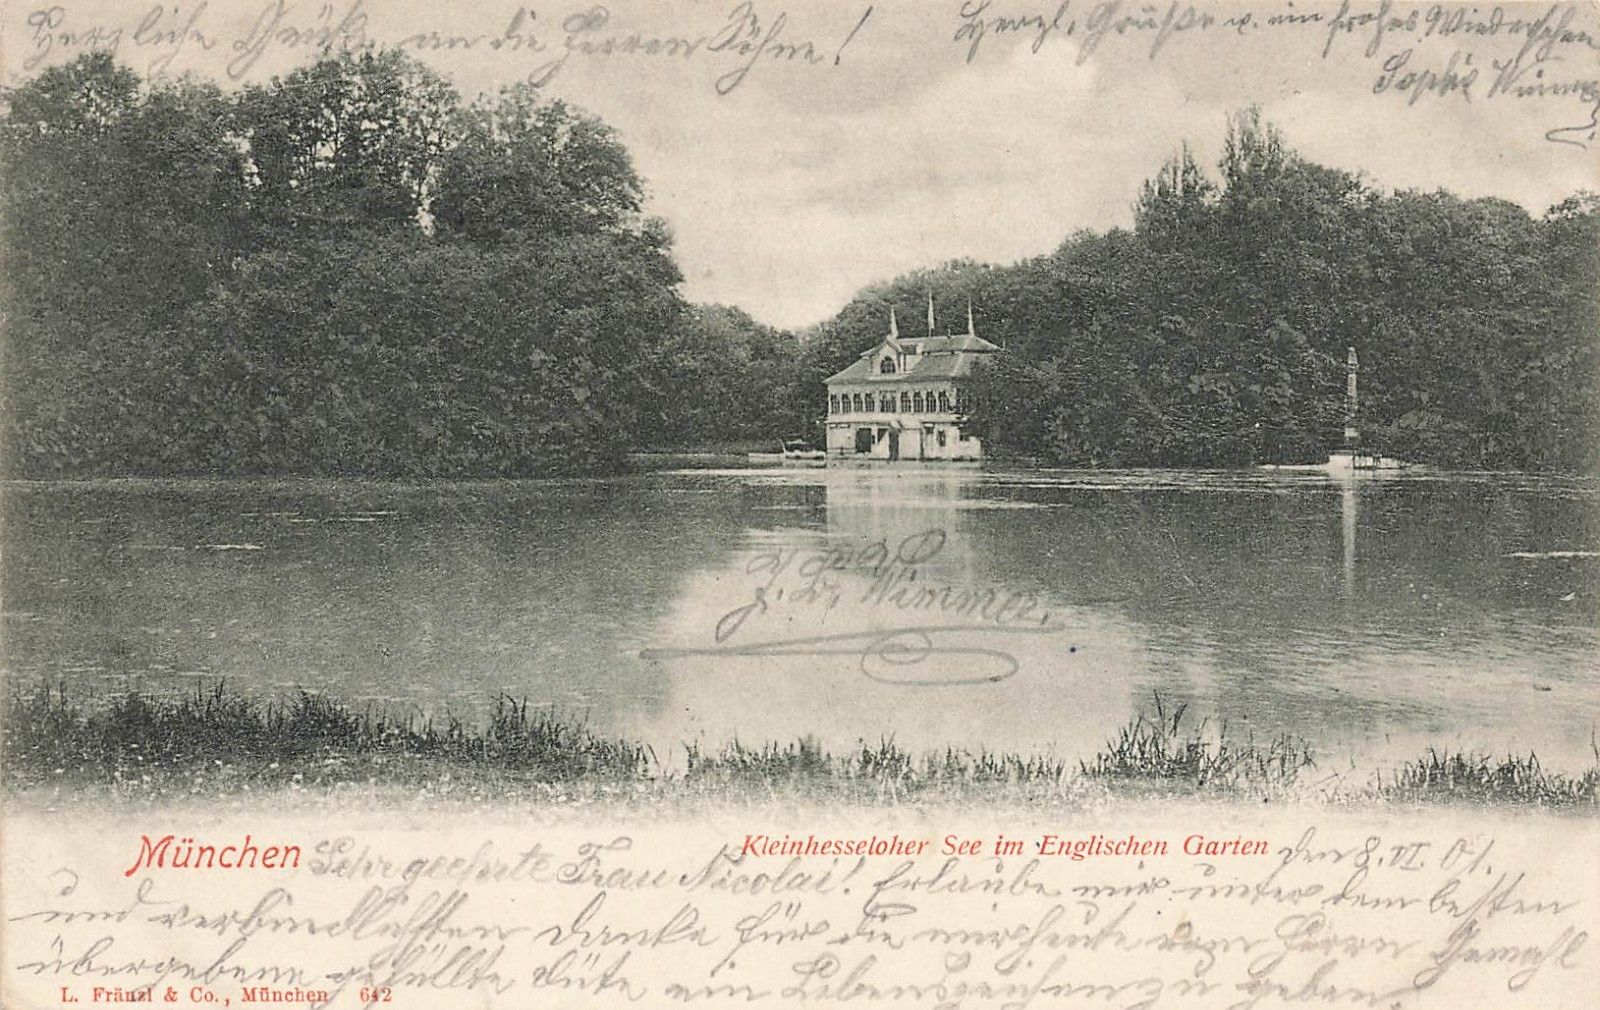 Herzliche Grüße an die Herren Söhne!
Herzl. Grüße u. ein frohes Wiedersehen
Sophie Wimmer
J. B. Wimmer.
München
Kleinhesseloher See im Englischen Garten
den 8. VI. 01.
Sehr geehrte Frau Nicolai! Erlaube mir unter dem besten
und verbindlichsten Danke für die mir heute vom Herrn Gemahl
übergebene gefüllte Düte ein Lebenszeichen zu geben.
L. Fränzl & Co., München 642